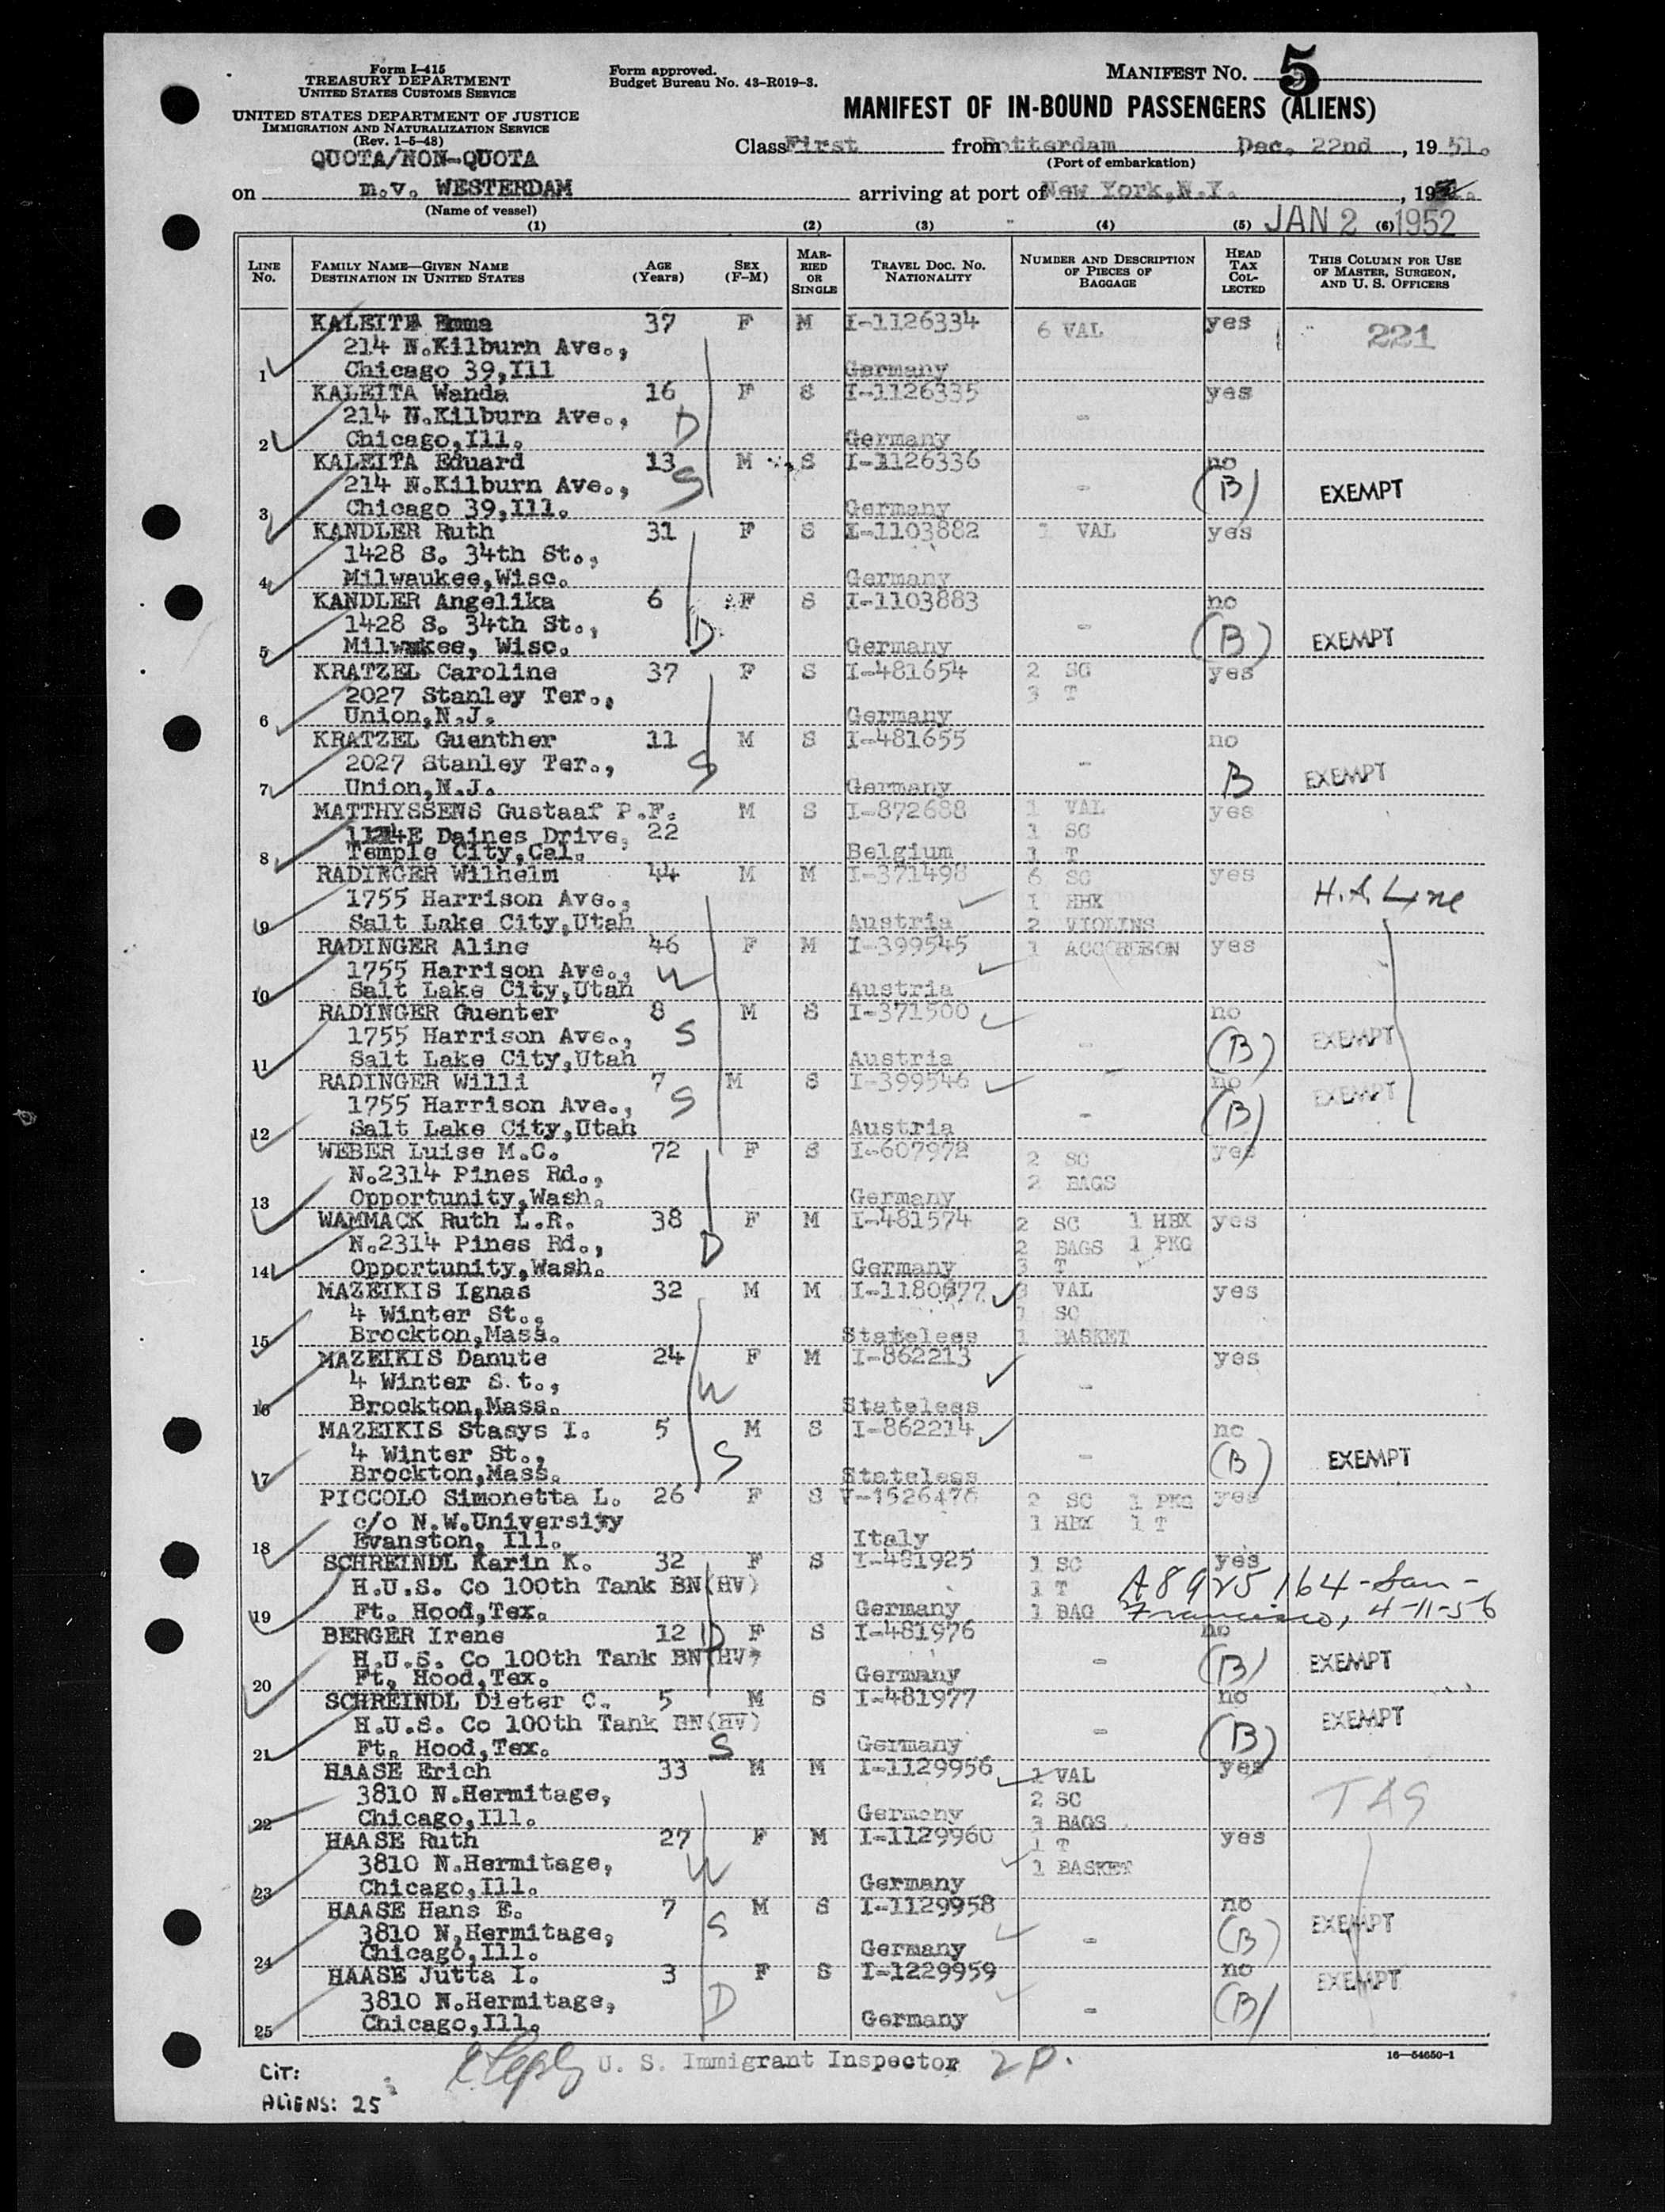 Form I-415
TREASURY DEPARTMENT
UNITED STATES CUSTOMS SERVICE
UNITED STATES DEPARTMENT OF JUSTICE
IMMIGRATION AND NATURALIZATION SERVICE
(Rev. 1-5-48)
QUOTA/NON-QUOTA
Form approved.
Budget Bureau No. 43-R019-3.
MANIFEST NO. 5
MANIFEST OF IN-BOUND PASSENGERS (ALIENS)
Class First from Rotterdam Dec. 22nd, 1951.
(Port of embarkation)
on m.v. WESTERDAM arriving at port of New York, N.Y., 19
(Name of vessel)
JAN 2 1952
(1) (2) (3) (4) (5) (6)
LINE NO.
FAMILY NAME—GIVEN NAME
DESTINATION IN UNITED STATES
AGE (Years)
SEX (F-M)
MARRIED OR SINGLE
TRAVEL DOC. NO.
NATIONALITY
NUMBER AND DESCRIPTION OF PIECES OF BAGGAGE
HEAD TAX COLLECTED
THIS COLUMN FOR USE OF MASTER, SURGEON, AND U. S. OFFICERS
KALEITA Emma 37 F M I-1126334 6 VAL yes 221
214 N.Kilburn Ave.,
1 Chicago 39,Ill Germany
KALEITA Wanda 16 F S I-1126335 yes
214 N.Kilburn Ave., D -
2 Chicago,Ill. Germany
KALEITA Eduard 13 M S I-1126336 no
214 N.Kilburn Ave., S - (B) EXEMPT
3 Chicago 39,Ill. Germany
KANDLER Ruth 31 F S I-1103882 1 VAL yes
1428 S. 34th St.,
4 Milwaukee,Wisc. Germany
KANDLER Angelika 6 F S I-1103883 no
1428 S. 34th St., D - (B) EXEMPT
5 Milwakee, Wisc. Germany
KRATZEL Caroline 37 F S I-481654 2 SC yes
2027 Stanley Ter., 3 T
6 Union,N.J. Germany
KRATZEL Guenther 11 M S I-481655 no
2027 Stanley Ter., S - B EXEMPT
7 Union,N.J. Germany
MATTHYSSENS Gustaaf P.F. M S I-872688 1 VAL yes
E Daines Drive, 22 1 SC
8 Temple City,Cal. Belgium 1 T
RADINGER Wilhelm 44 M M I-371498 6 SC yes
1755 Harrison Ave., 1 HBX H.A. Line
9 Salt Lake City,Utah Austria 2 VIOLINS
RADINGER Aline 46 F M I-399545 1 ACCORDEON yes
1755 Harrison Ave., W
10 Salt Lake City,Utah Austria
RADINGER Guenter 8 M S I-371500 no
1755 Harrison Ave., S - (B) EXEMPT
11 Salt Lake City,Utah Austria
RADINGER Willi 7 M S I-399546 - no
1755 Harrison Ave., S - (B) EXEMPT
12 Salt Lake City,Utah Austria
WEBER Luise M.C. 72 F S I-607972 2 SC yes
N.2314 Pines Rd., 2 BAGS
13 Opportunity,Wash. Germany
WAMMACK Ruth L.R. 38 F M I-481574 2 SC 1 HBX yes
N.2314 Pines Rd., D 2 BAGS 1 PKG
14 Opportunity,Wash. Germany 3 T
MAZEIKIS Ignas 32 M M VAL yes
4 Winter St., 1 SC
15 Brockton,Mass. Stateless 1 BASKET
MAZEIKIS Danute 24 F M I-862213 yes
4 Winter S.t., W -
16 Brockton,Mass. Stateless
MAZEIKIS Stasys I. 5 M S I-862214 no
4 Winter St., S - (B) EXEMPT
17 Brockton,Mass. Stateless
PICCOLO Simonetta L. 26 F S V-1526476 2 SC 1 PKG yes
c/o N.W.University 1 HBX 1 T
18 Evanston, Ill. Italy
SCHREINDL Karin K. 32 F S I-481925 1 SC yes
H.U.S. Co 100th Tank BN(HV) 1 T A8925164-San-
19 Ft. Hood,Tex. Germany 1 BAG Francisco, 4-11-56
BERGER Irene 12 D F S I-481976 no
H.U.S. Co 100th Tank BN(HV) - (B) EXEMPT
20 Ft. Hood,Tex. Germany
SCHREINDL Dieter C. 5 M S I-481977 no
H.U.S. Co 100th Tank BN(HV) - (B) EXEMPT
21 Ft. Hood,Tex. S Germany
HAASE Erich 33 M M I-1129956 1 VAL yes
3810 N.Hermitage, 2 SC TAS
22 Chicago,Ill. Germany 3 BAGS
HAASE Ruth 27 F M I-1129960 1 T yes
3810 N.Hermitage, W 1 BASKET
23 Chicago,Ill. Germany
HAASE Hans E. 7 M S I-1129958 no
3810 N,Hermitage, S - (B) EXEMPT
24 Chicago,Ill. Germany
HAASE Jutta I. 3 F S I-1229959 no
3810 N.Hermitage, D - (B) EXEMPT
25 Chicago,Ill. Germany
U. S. Immigrant Inspector 2P.
16—54650-1
CIT:
ALIENS: 25